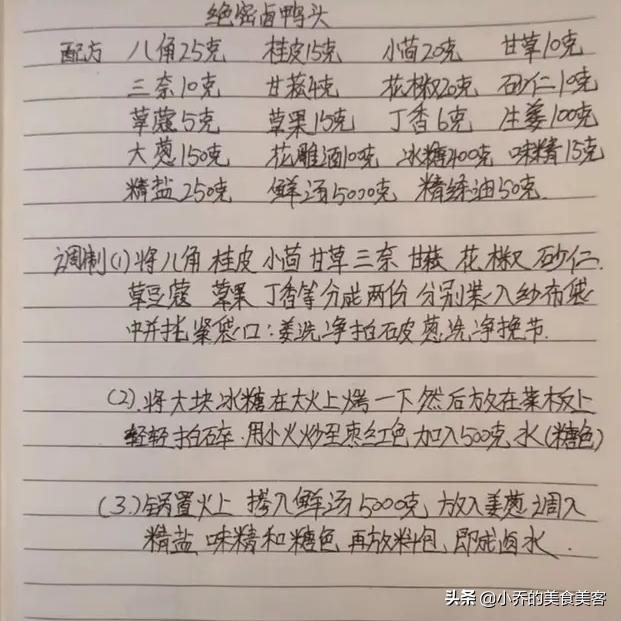 绝密卤鸭头
配方 八角25克 桂皮15克 小茴20克 甘草10克
三奈10克 甘菘4克 花椒20克 砂仁10克
草蔻5克 草果15克 丁香6克 生姜100克
大葱150克 花雕酒10克 冰糖400克 味精15克
精盐250克 鲜汤5000克 精练油50克
调制(1)将八角 桂皮 小茴 甘草 三奈 甘菘 花椒 砂仁.
草豆蔻 草果 丁香等分成两份 分别装入纱布袋
中并扎紧袋口:姜洗净拍破 葱洗净挽节.
(2).将大块冰糖在大火上烤一下 然后放在菜板上
轻轻拍碎.用小火炒至枣红色,加入500克,水(糖色)
(3.)锅置火上 搭入鲜汤5000克,放入姜葱调入
精盐 味精和糖色 再放料包,即成卤水.
头条 @小乔的美食美客